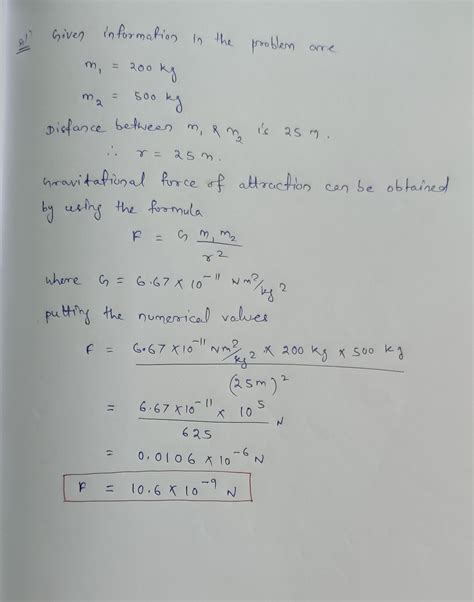 a1) Given information in the problem are
m₁ = 200 kg
m₂ = 500 kg
Distance between m₁ & m₂ is 25 m.
∴ r = 25 m.
Gravitational force of attraction can be obtained
by using the formula
F = G m₁ m₂ / r²
where G = 6.67 × 10⁻¹¹ Nm²/kg²
putting the numerical values
F = 6.67 × 10⁻¹¹ Nm²/kg² × 200 kg × 500 kg / (25m)²
= 6.67 × 10⁻¹¹ × 10⁵ / 625 N
= 0.0106 × 10⁻⁶ N
F = 10.6 × 10⁻⁹ N